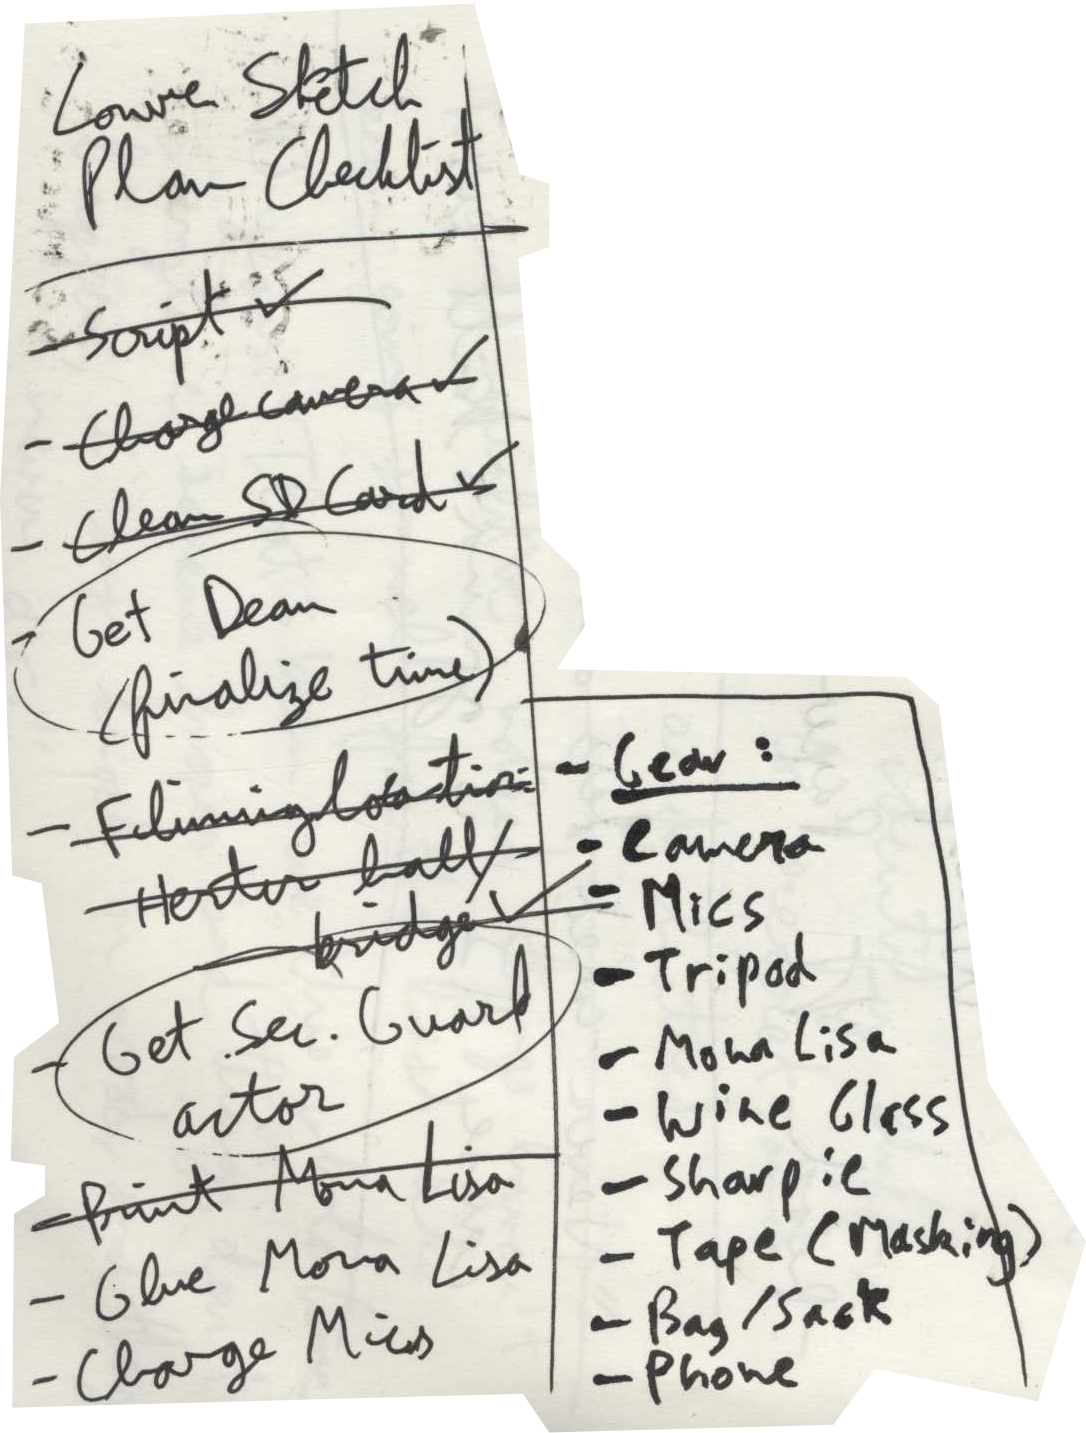 Louvre Sketch
Plan Checklist
- Script ✓
- Charge camera ✓
- Clean SD Card ✓
- Get Dean
(finalize time)
- Filming location:
Herter hall/
bridge ✓
- Get Sec. Guard
actor
- Print Mona Lisa
- Glue Mona Lisa
- Charge Mics
- Gear:
- Camera
- Mics
- Tripod
- Mona Lisa
- Wine Glass
- Sharpie
- Tape (Masking)
- Bag/Sack
- Phone